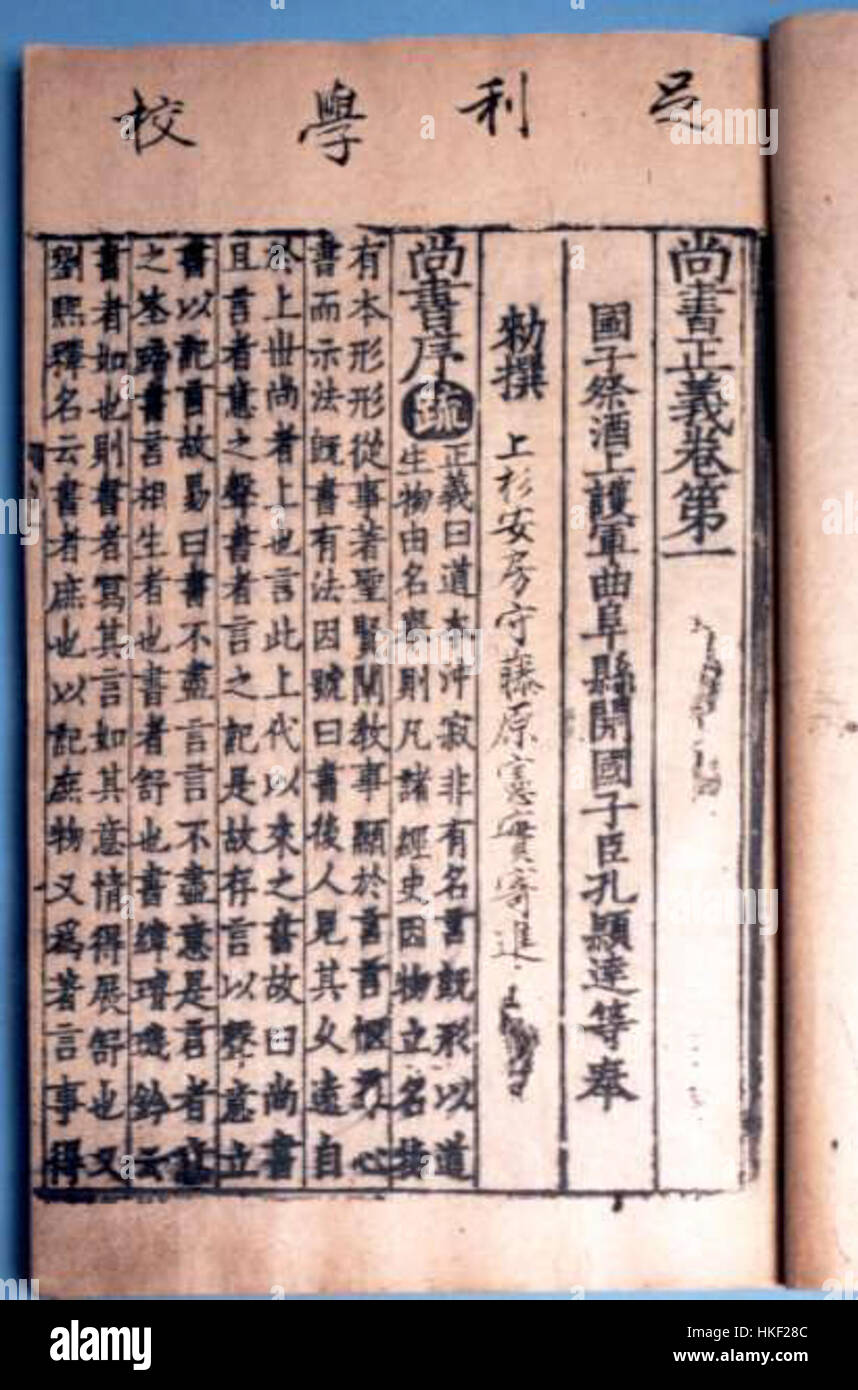 足利學校
尚書正義卷第一
國子祭酒上護軍曲阜縣開國子臣孔穎達等奉
勑撰 上杉安房守藤原憲實寄進
尚書序 疏 正義曰道本沖寂非有名言既形以道
生物由名舉則凡諸經史因物立名物
有本形形從事著聖賢闡教事顯於言言愜羣心
書而示法既書有法因號曰書後人見其久遠自
於上世尚者上也言此上代以來之書故曰尚書
且言者意之聲書者言之記是故存言以聲意立
書以記言故易曰書不盡言言不盡意是言者意
之筌蹄書言相生者也書者舒也書緯璿璣鈐云
書者如也則書者寫其言如其意情得展舒也又
劉熙釋名云書者庶也以記庶物又爲著言事得
alamy
Image ID: HKF28C
www.alamy.com